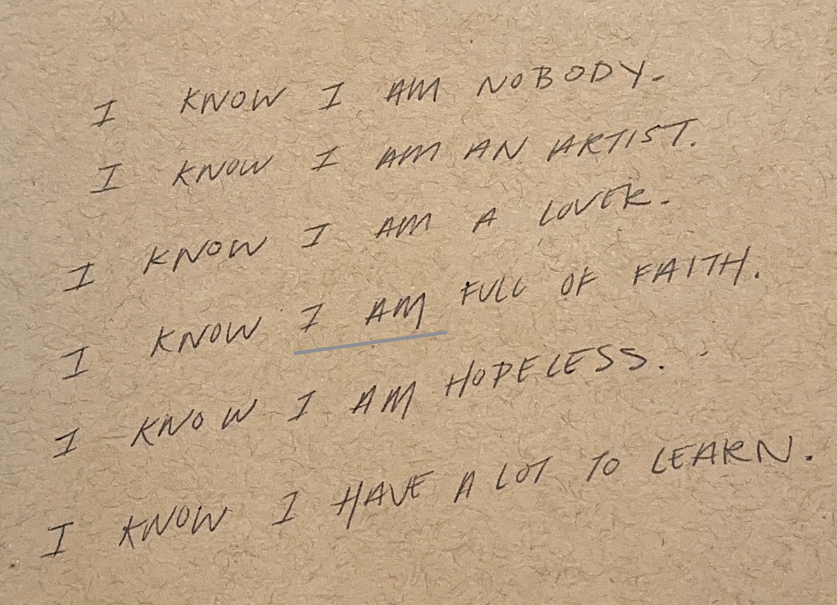 I KNOW I AM NOBODY.
I KNOW I AM AN ARTIST.
I KNOW I AM A LOVER.
I KNOW I AM FULL OF FAITH.
I KNOW I AM HOPELESS.
I KNOW I HAVE A LOT TO LEARN.